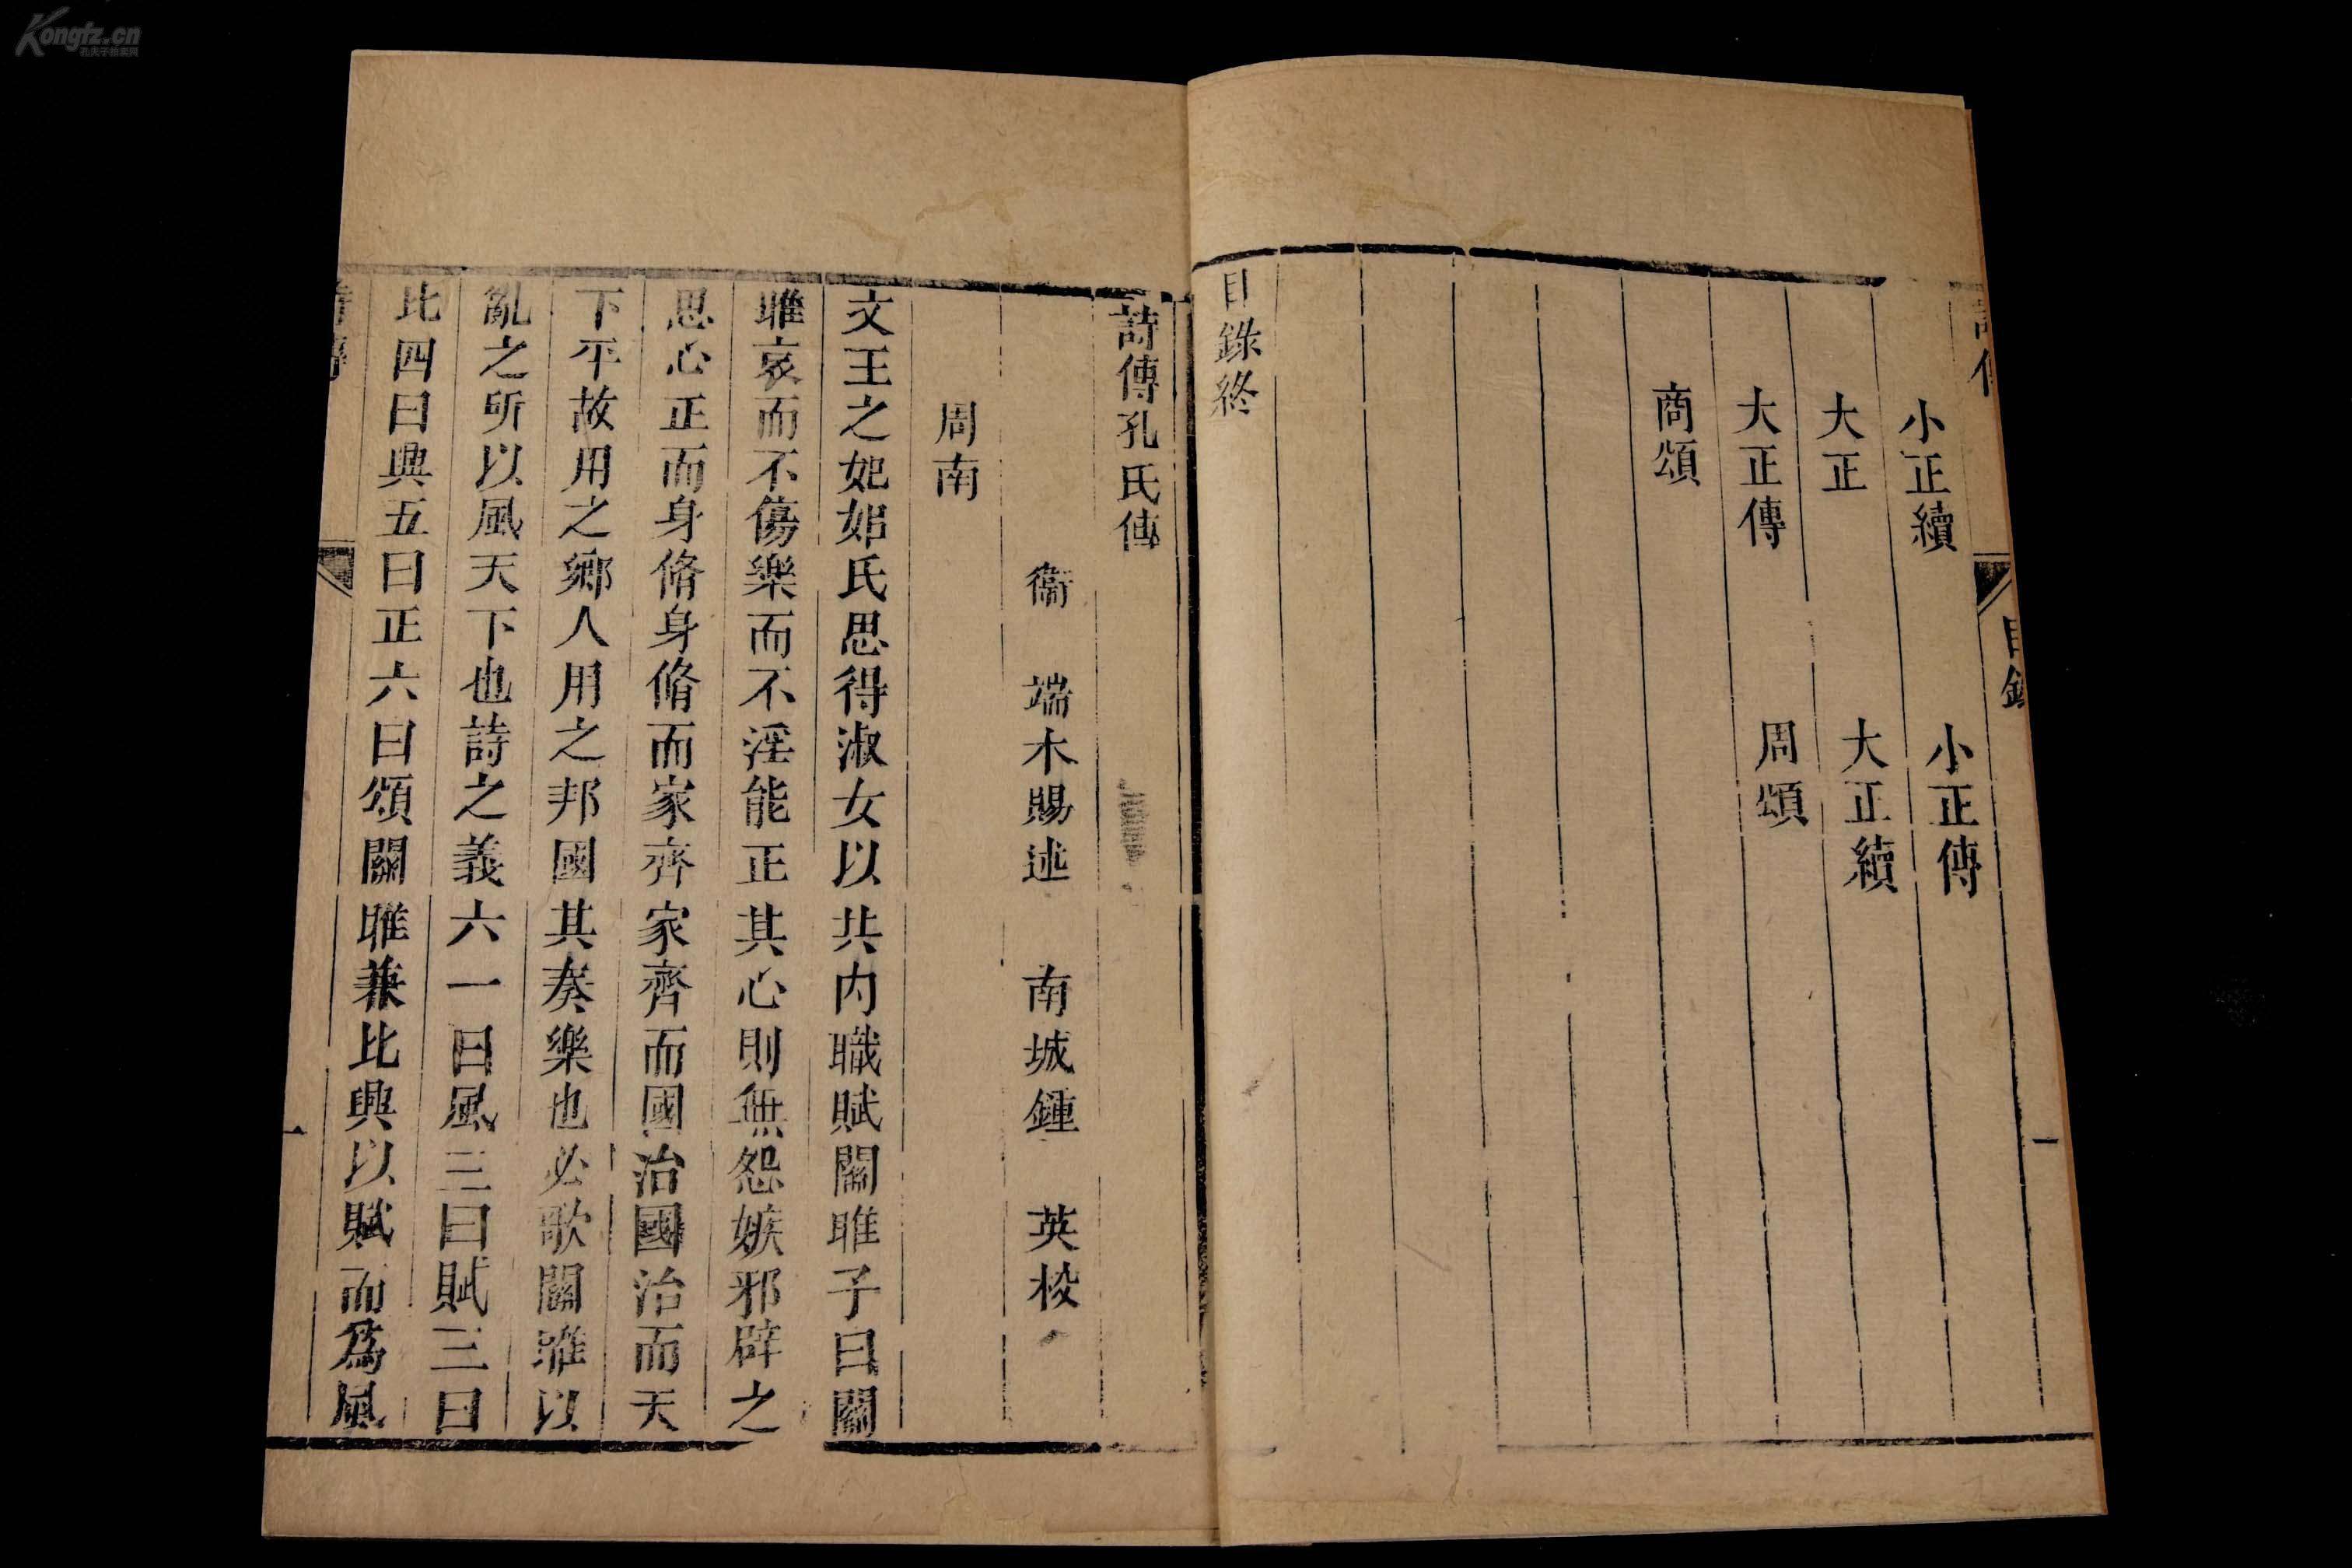 Kongfz.cn
孔夫子旧书网
目錄
一
小正續　小正傳
大正　大正續
大正傳　周頌
商頌
目錄終
詩傳孔氏傳
衞　端木賜述　南城鍾　英校
周南
文王之妃姒氏思得淑女以共内職賦關雎子曰關
雎哀而不傷樂而不淫能正其心則無怨嫉邪辟之
思心正而身脩身脩而家齊家齊而國治國治而天
下平故用之鄉人用之邦國其奏樂也必歌關雎以
亂之所以風天下也詩之義六一曰風二曰賦三曰
比四曰興五曰正六曰頌關雎兼比興以賦而爲風
一